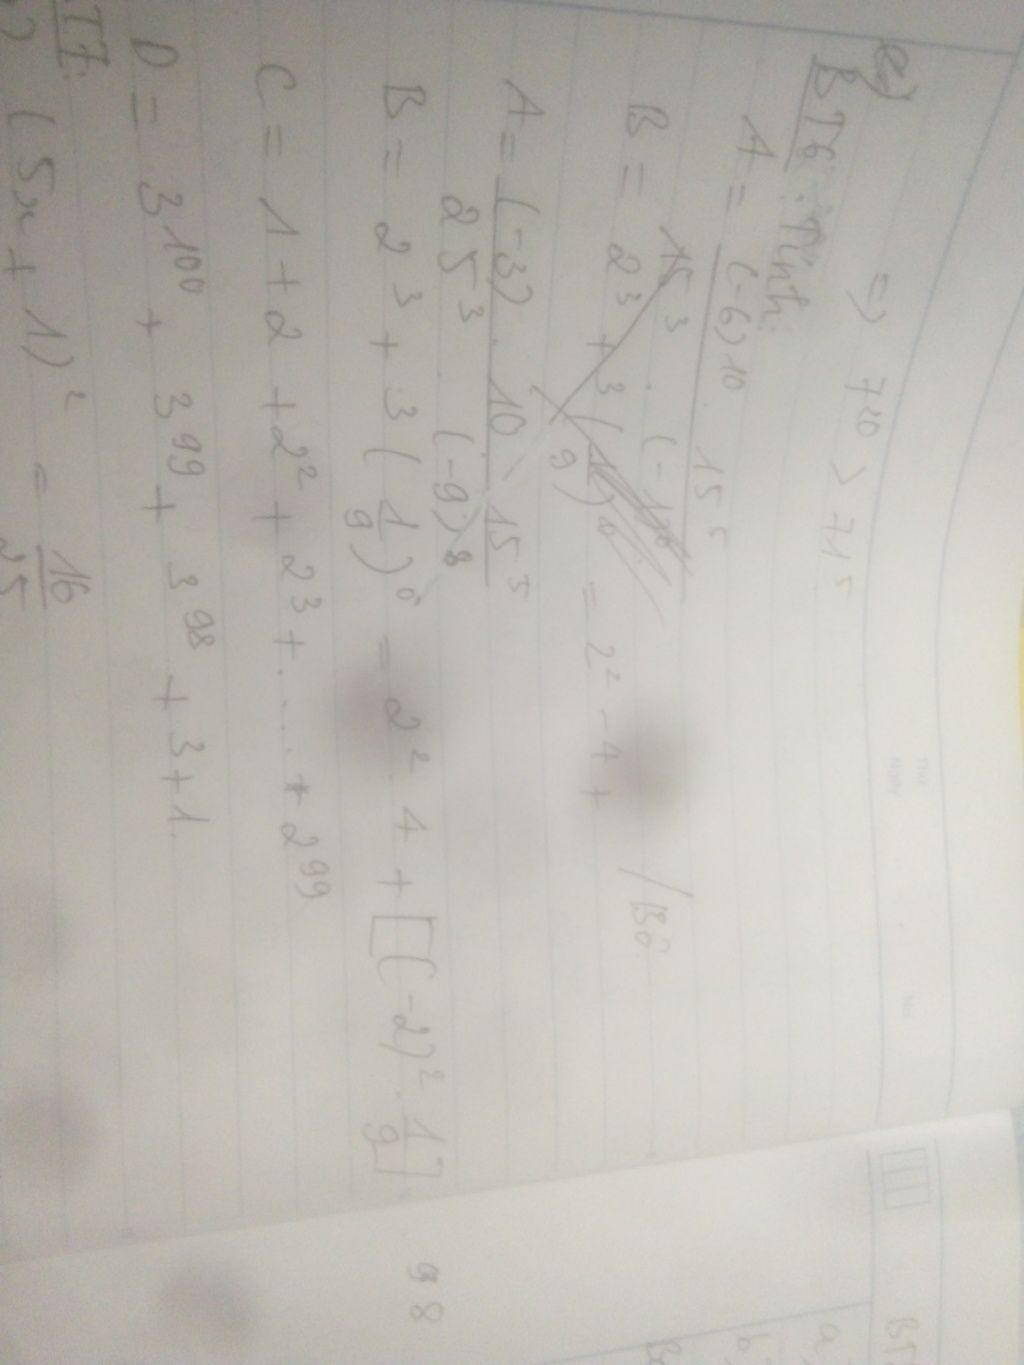 e)
=> 7^40 > 71^5
BT6: Tính:
A = (-6)^10 . 15^5
15^3 . (-
B = 2^3 + 3( /9)^0 = 2^2 - 4 + /Bỏ
A = (-3) . 10 . 15^5
25^3 . (-9)^8
B = 2^3 + 3(1/9)^0 = 2^2 . 4 + [(-2)^2 . 1/9]
98
C = 1 + 2 + 2^2 + 2^3 + .... + 2^99
D = 3^100 + 3^99 + 3^98 + 3 + 1.
T7:
(5x + 1)^2 = 16/25
BT
a,
b